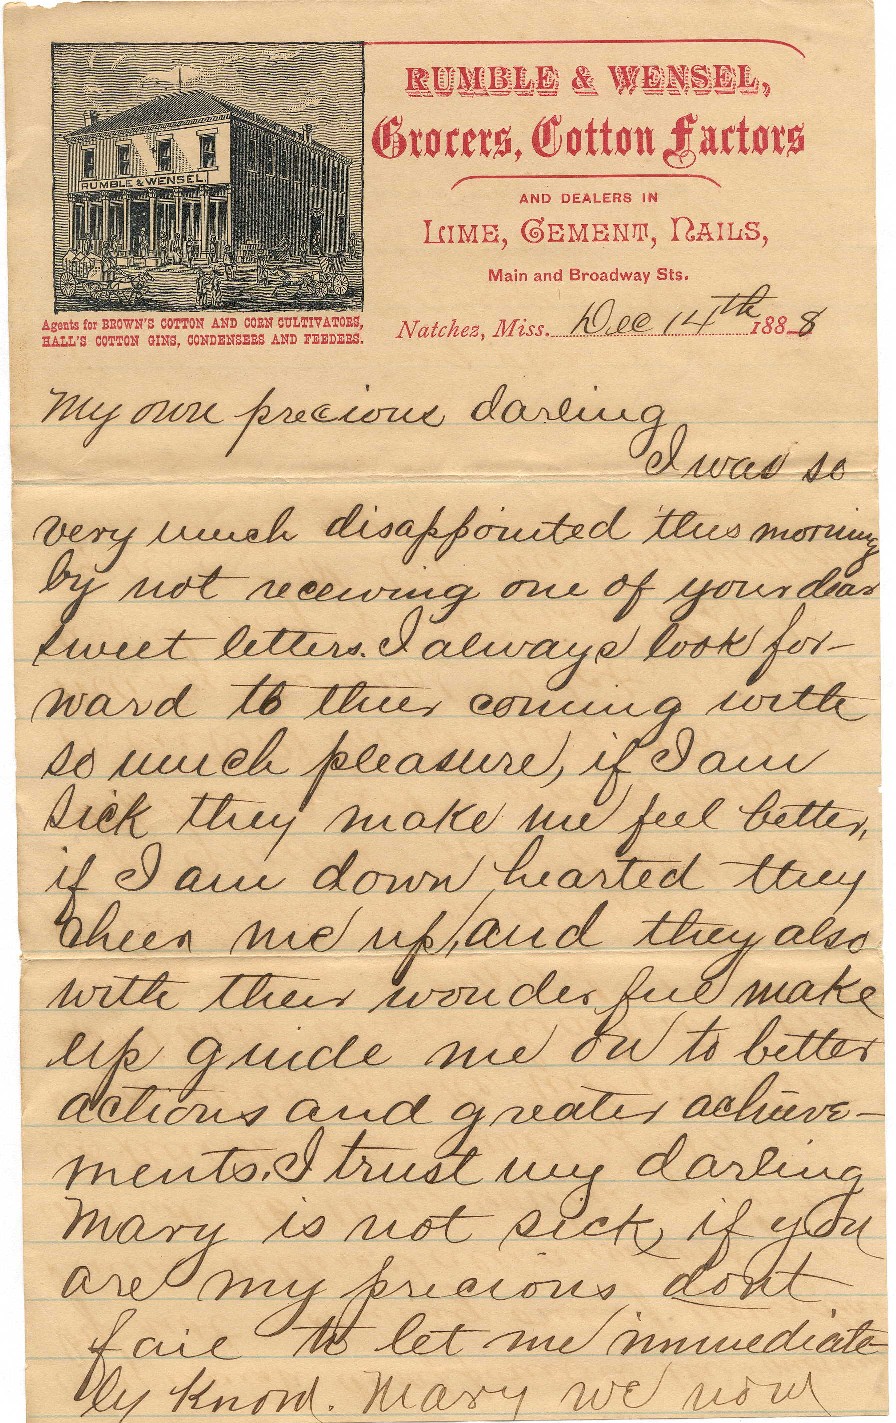 RUMBLE & WENSEL
RUMBLE & WENSEL,
Grocers, Cotton Factors
AND DEALERS IN
LIME, CEMENT, NAILS,
Main and Broadway Sts.
Agents for BROWN'S COTTON AND CORN CULTIVATORS,
HALL'S COTTON GINS, CONDENSERS AND FEEDERS.
Natchez, Miss. Dec 14th 1888
My own precious darling
I was so
very much disappointed this morning
by not receiving one of your dear
sweet letters. I always look for-
ward to their coming with
so much pleasure, if I am
sick they make me feel better,
if I am down hearted they
cheer me up, and they also
with their wonderful make
up guide me on to better
actions and greater achieve-
ments. I trust my darling
Mary is not sick, if you
are my precious dont
fail to let me immediate-
ly know. Mary we now